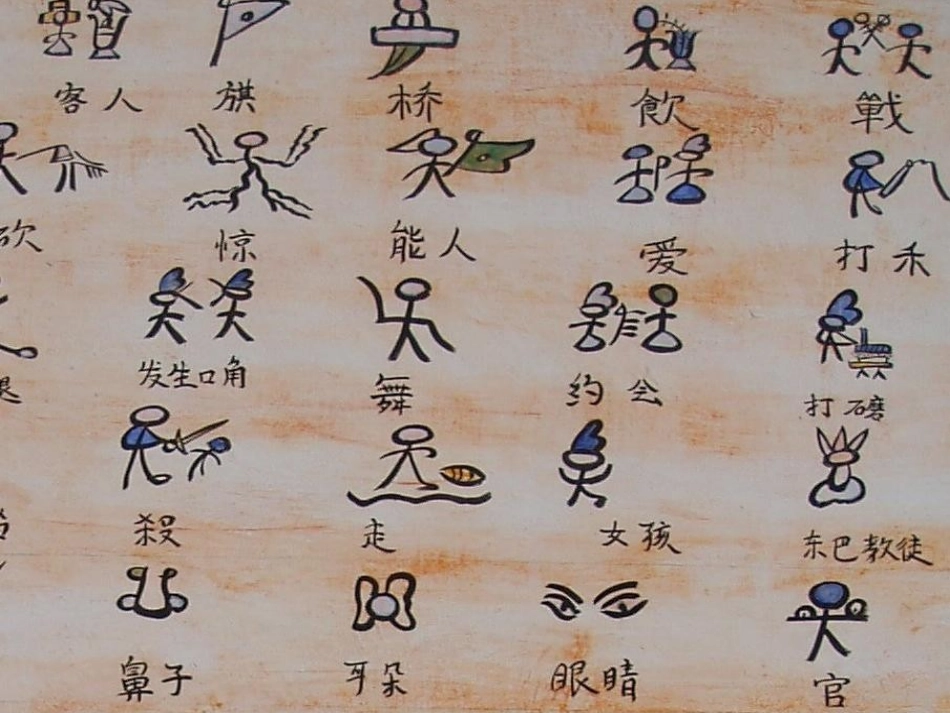 客人 旗 桥 飲 戰
砍 惊 能人 爱 打禾
发生口角 舞 约会 打磨
殺 走 女孩 东巴教徒
鼻子 耳朵 眼睛 官